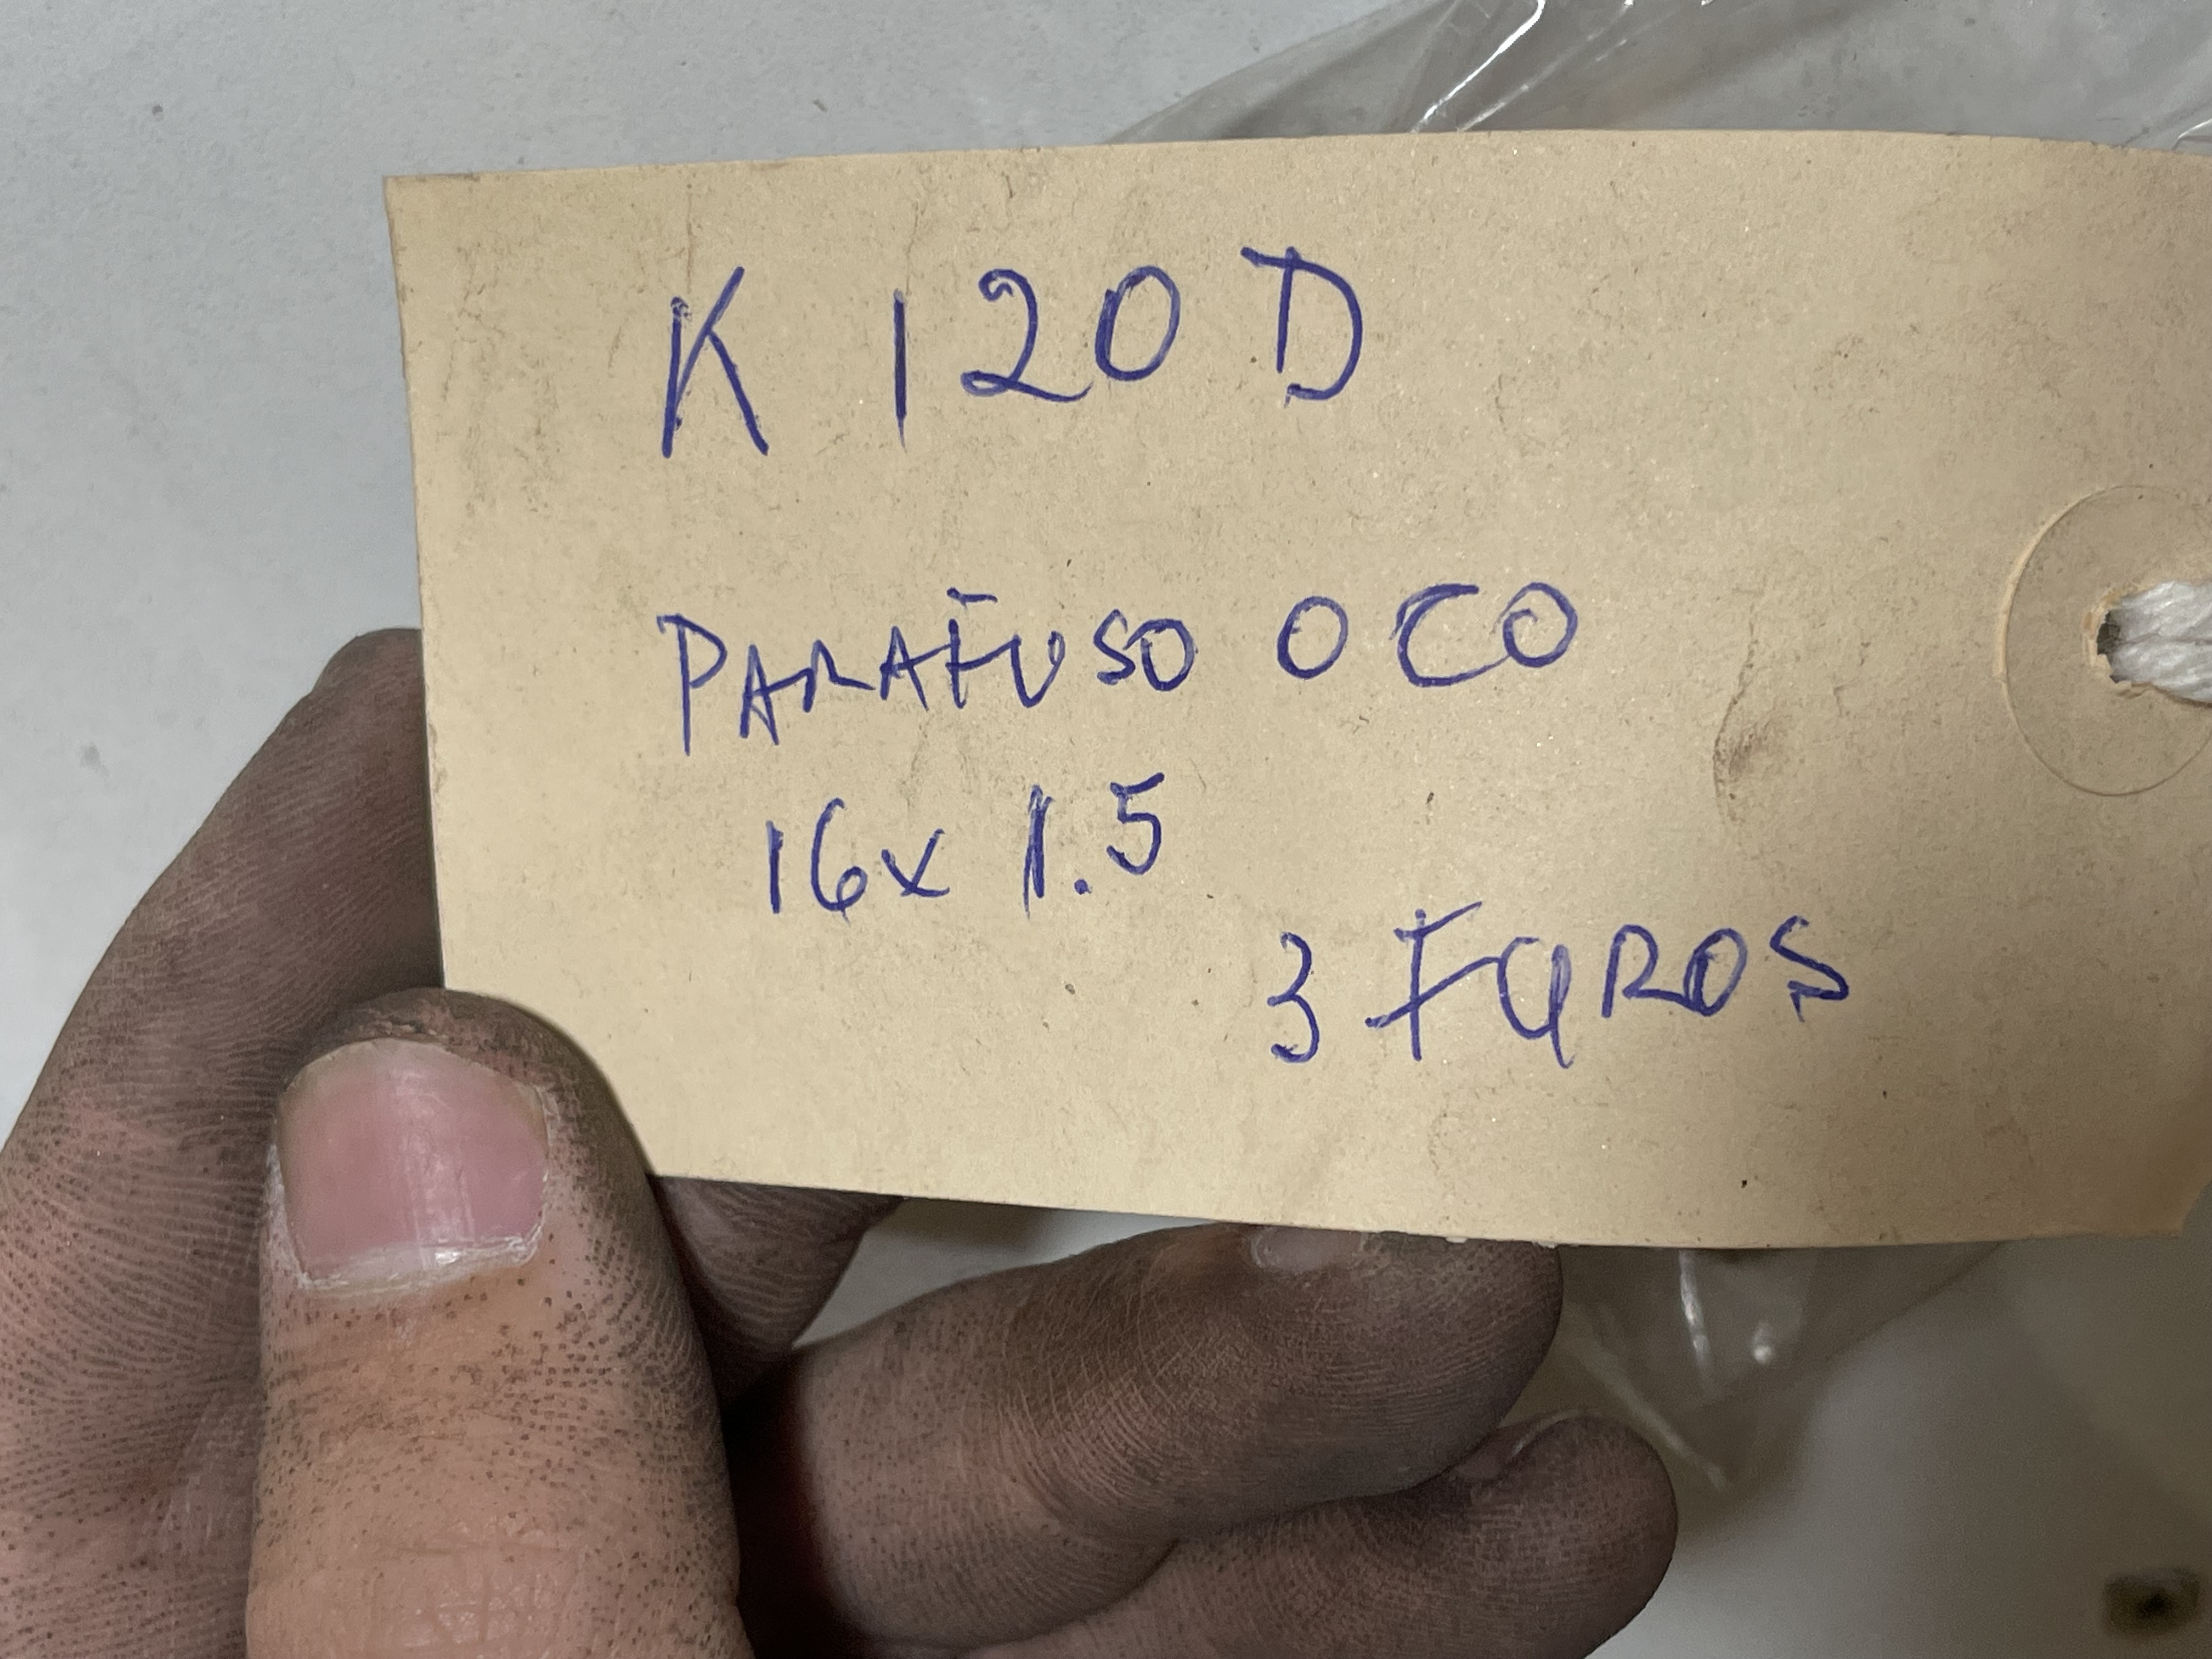 K 120 D
PARAFUSO OCO
16x1.5
3 FUROS